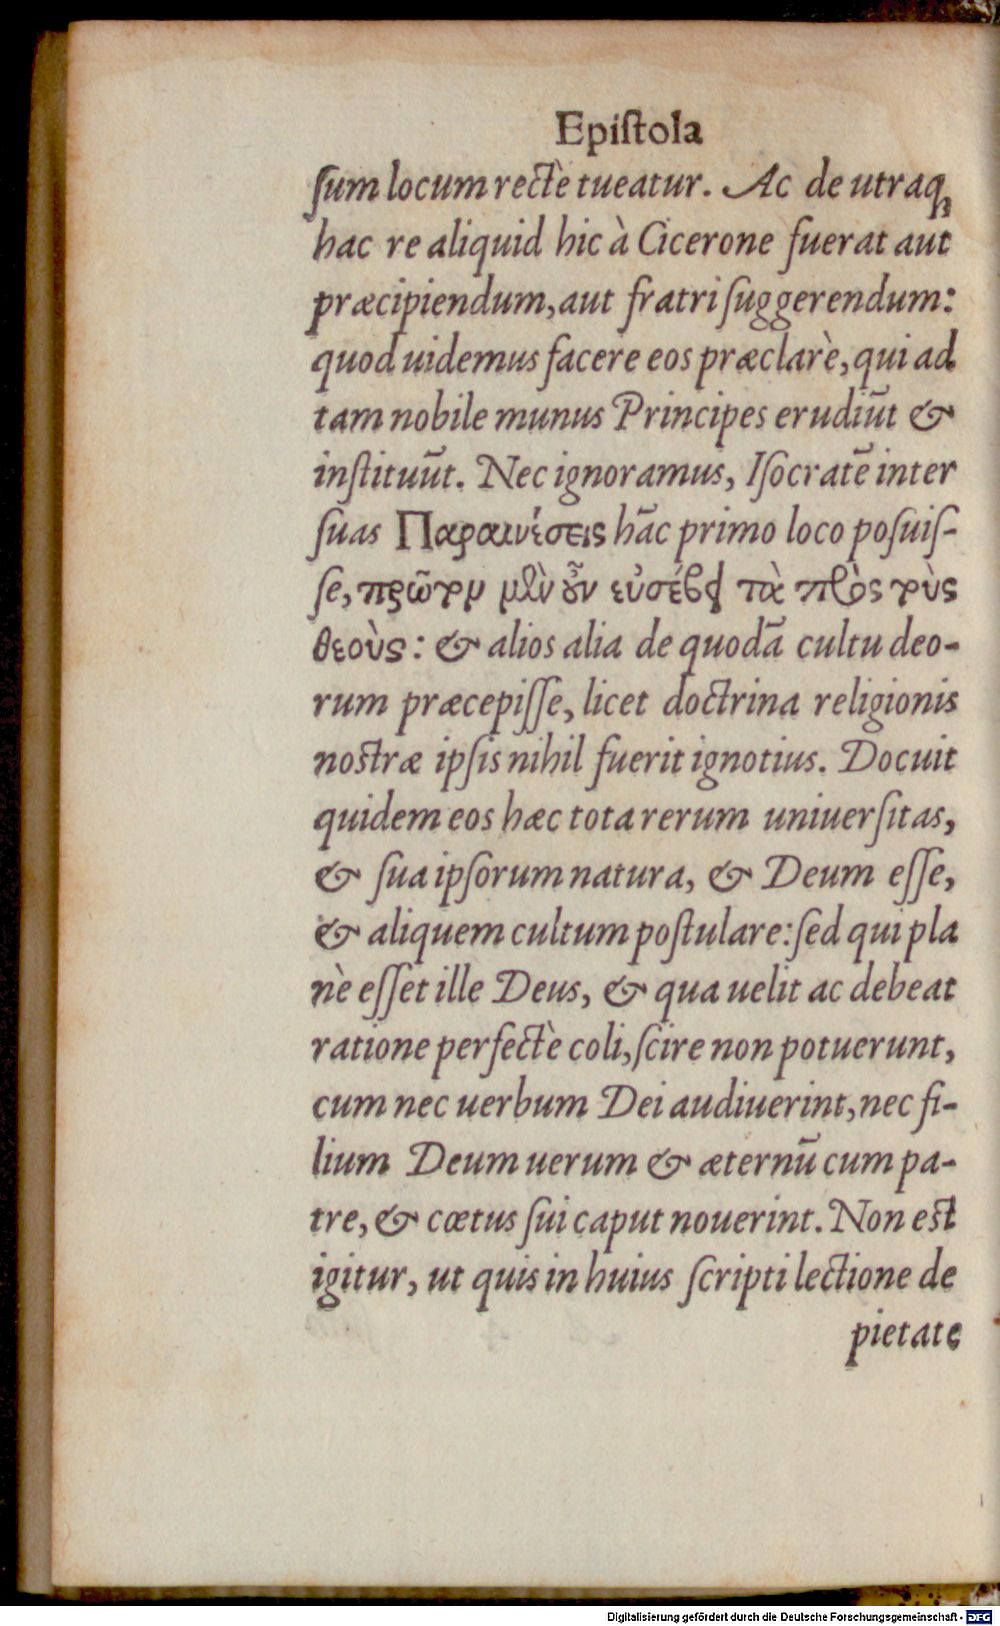 Epiſtola
ſum locum rectè tueatur. Ac de utraqꝫ
hac re aliquid hic à Cicerone fuerat aut
præcipiendum, aut fratri ſuggerendum:
quod uidemus facere eos præclarè, qui ad
tam nobile munus Principes erudiũt &
inſtituũt. Nec ignoramus, Iſocratẽ inter
ſuas Παραινέσεις hãc primo loco poſuiſ-
ſe, πρῶτομ μὲν οὖν εὐσέβει τὰ πρὸς τοὺς
θεοὺς: & alios alia de quodã cultu deo-
rum præcepiſſe, licet doctrina religionis
nostræ ipſis nihil fuerit ignotius. Docuit
quidem eos hæc tota rerum uniuerſitas,
& ſua ipſorum natura, & Deum eſſe,
& aliquem cultum poſtulare: ſed qui pla
nè eſſet ille Deus, & qua uelit ac debeat
ratione perfectè coli, ſcire non potuerunt,
cum nec uerbum Dei audiuerint, nec fi-
lium Deum uerum & æternũ cum pa-
tre, & cœtus ſui caput nouerint. Non est
igitur, ut quis in huius ſcripti lectione de
pietate
Digitalisierung gefördert durch die Deutsche Forschungsgemeinschaft - DFG